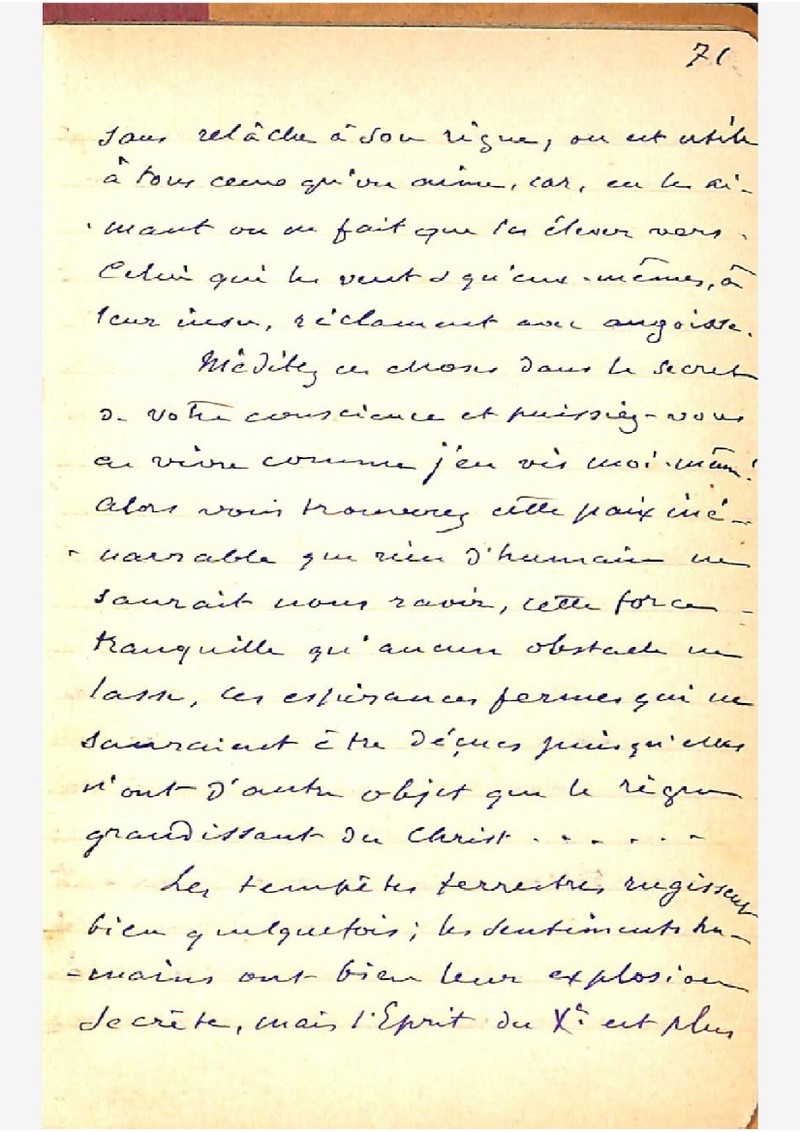 71
sans relâche à son règne, on est utile
à tous ceux qu'on aime, car, en les ai-
mant on ne fait que les élever vers
Celui qui les veut & qu'eux-mêmes, à
leur insu, réclament avec angoisse.
Méditez ces choses dans le secret
de votre conscience et puissiez-vous
en vivre comme j'en vis moi-même!
Alors vous trouverez cette paix iné-
narrable que rien d'humain ne
saurait nous ravir, cette force
tranquille qu'aucun obstacle ne
lasse, ces espérances fermes qui ne
sauraient être déçues puisqu'elles
n'ont d'autre objet que le règne
grandissant du Christ . . . . . .
Les tempêtes terrestres rugissent
bien quelquefois; les sentiments hu-
-mains ont bien leur explosion
secrète, mais l'Esprit du Xt est plus